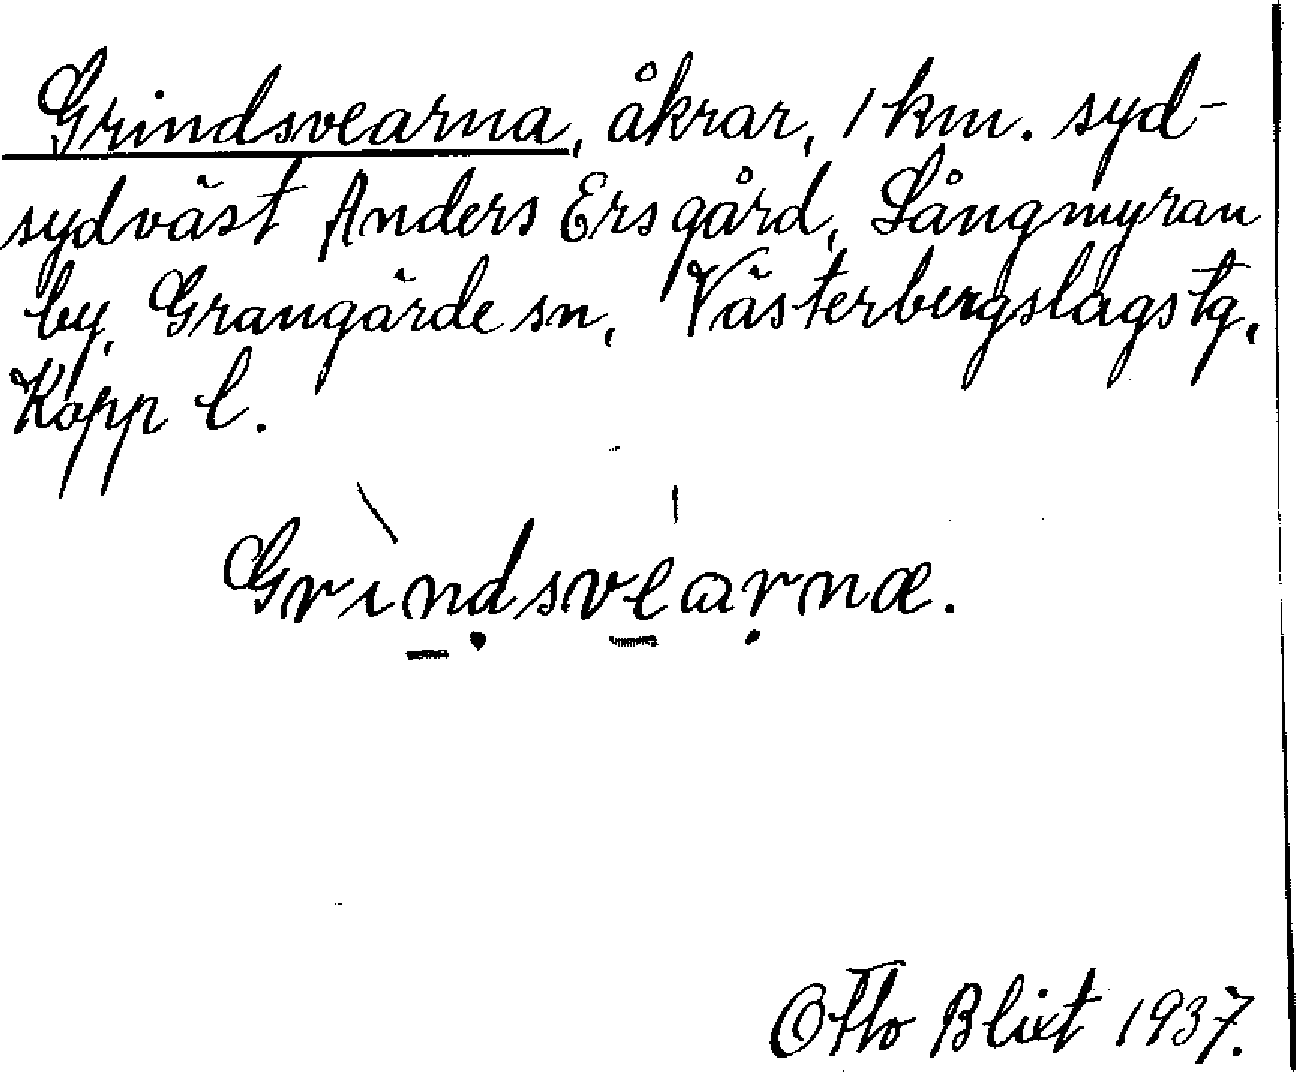 Grindsvearna, åkrar, 1 km. syd-
sydväst Anders Ers gård, Långmyran
by, Grangärde sn, Västerbergslags tg,
Kopp l.
Grindsvearnæ.
Otto Blixt 1937.